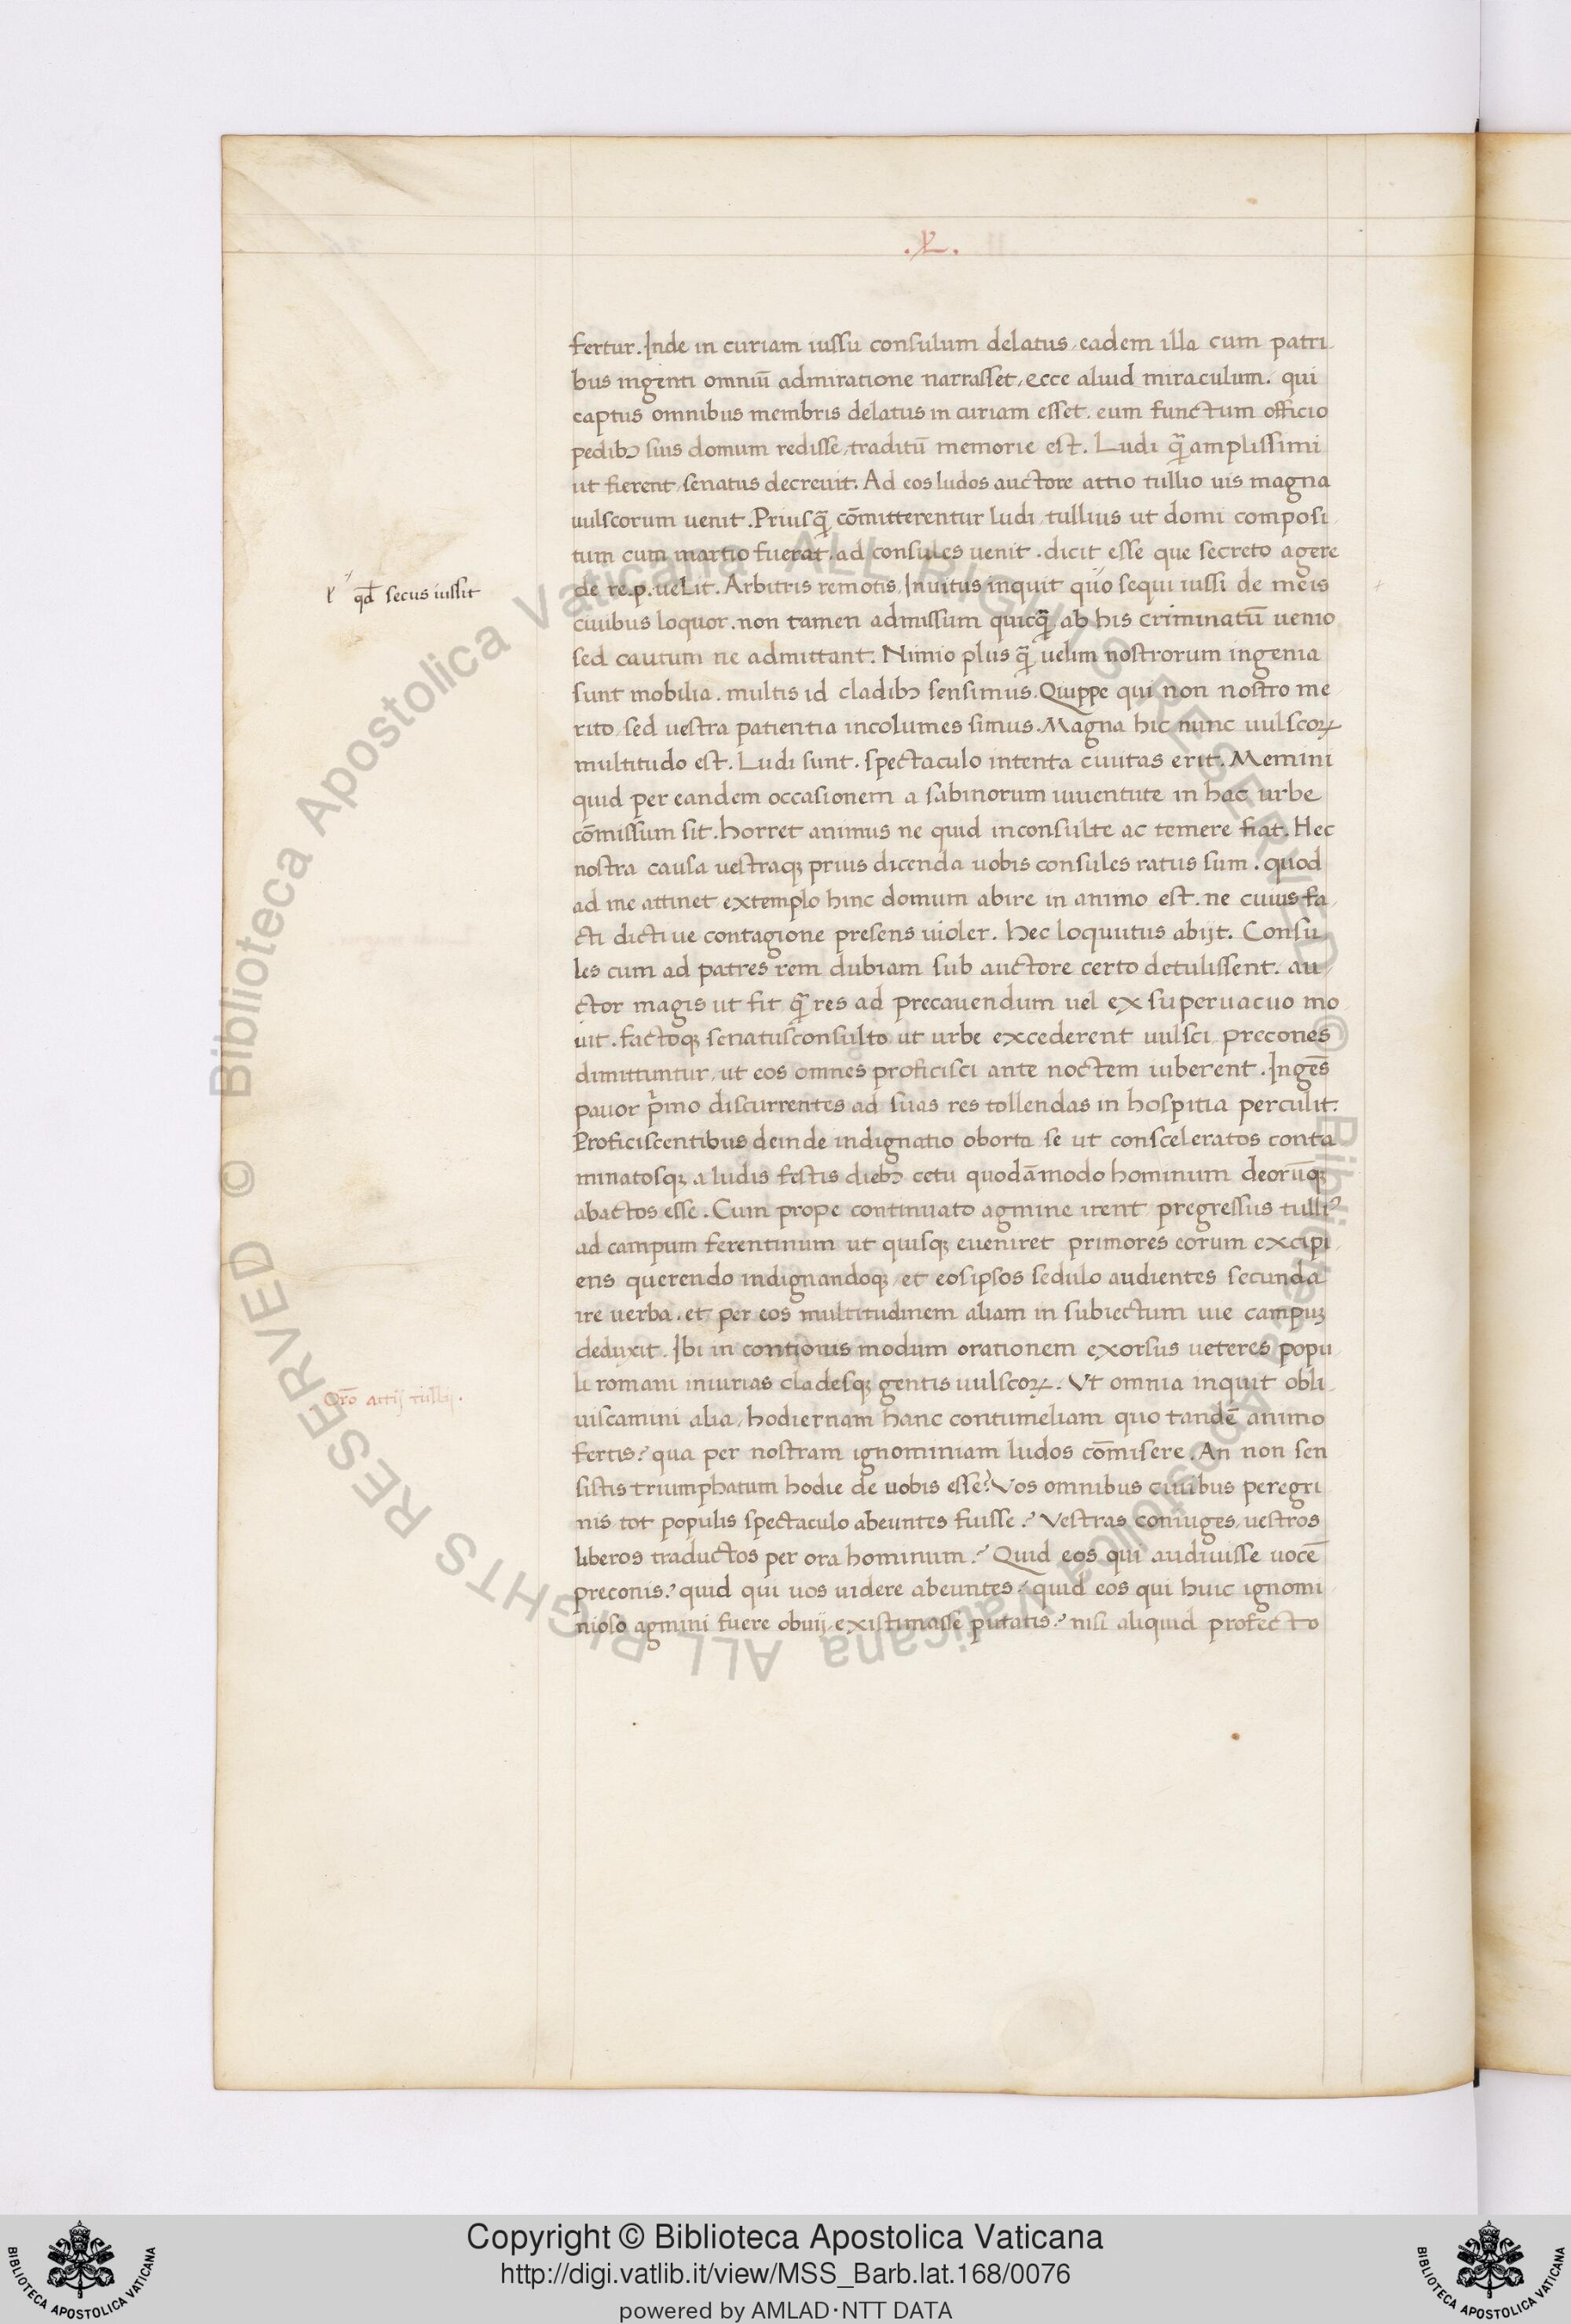 .L.
fertur. Inde in curiam iussu consulum delatus, eadem illa cum patri
bus ingenti omniū admiratione narrasset, ecce aliud miraculum. qui
captus omnibus membris delatus in curiam esset. eum functum officio
pedibꝫ suis domum redisse, traditū memorie est. Ludi qꝫ̄ amplissimi
ut fierent, senatus decreuit. Ad eos ludos auctore attio tullio uis magna
uulscorum uenit. Priusqꝫ̄ cōmitterentur ludi, tullius ut domi composi
tum cum martio fuerat. ad consules uenit. dicit esse que secreto agere
de re.p. uelit. Arbitris remotis, Inuitus inquit quo sequi iussi de meis
qđ secus iussit
ciuibus loquor. non tamen admissum quicqꝫ̄ ab his criminatū uenio
sed cautum ne admittant. Nimio plus qꝫ̄ uelim nostrorum ingenia
sunt mobilia. multis id cladibꝫ sensimus. Quippe qui non nostro me
rito, sed uestra patientia incolumes simus. Magna hic nunc uulscoꝝ
multitudo est. Ludi sunt. spectaculo intenta ciuitas erit. Memini
quid per eandem occasionem a sabinorum iuuentute in hac urbe
cōmissum sit. horret animus ne quid inconsulte ac temere fiat. Hec
nostra causa uestraqꝫ prius dicenda uobis consules ratus sum. quod
ad me attinet extemplo hinc domum abire in animo est. ne cuius fa
cti dicti ue contagione presens uioler. hec loquutus abijt. Consu
les cum ad patres rem dubiam sub auctore certo detulissent. au
ctor magis ut fit qꝫ̄ res ad precauendum uel ex superuacuo mo
uit. factoqꝫ senatusconsulto ut urbe excederent uulsci precones
dimittuntur, ut eos omnes proficisci ante noctem iuberent. Ingēs
pauor p̍mo discurrentes ad suas res tollendas in hospitia perculit.
Proficiscentibus deinde indignatio oborta se ut consceleratos conta
minatosqꝫ a ludis festis diebꝫ cetu quodāmodo hominum deorūqꝫ
abactos esse. Cum prope continuato agmine irent pregressus tulliꝰ
ad campum ferentinum ut quisqꝫ eueniret primores eorum excipi
ens querendo indignandoqꝫ, et eosipsos sedulo audientes secunda
ire uerba. et per eos multitudinem aliam in subiectum uie campuꝫ
deduxit. Ibi in contionis modum orationem exorsus ueteres popu
li romani iniurias cladesqꝫ gentis uulscoꝝ. Vt omnia inquit obli
Orō attij tullij.
uiscamini alia, hodiernam hanc contumeliam quo tandē animo
fertis? qua per nostram ignominiam ludos cōmisere. An non sen
sistis triumphatum hodie de uobis esse? Vos omnibus ciuibus peregri
nis tot populis spectaculo abeuntes fuisse? Vestras coniuges, uestros
liberos traductos per ora hominum? Quid eos qui audiuisse uocē
preconis? quid qui uos uidere abeuntes? quid eos qui huic ignomi
nioso agmini fuere obuij, existimasse putatis? nisi aliquid profecto
© Biblioteca Apostolica Vaticana ALL RIGHTS RESERVED
© Biblioteca Apostolica Vaticana ALL RIGHTS RESERVED
BIBLIOTECA APOSTOLICA VATICANA
Copyright © Biblioteca Apostolica Vaticana
http://digi.vatlib.it/view/MSS_Barb.lat.168/0076
powered by AMLAD·NTT DATA
BIBLIOTECA APOSTOLICA VATICANA